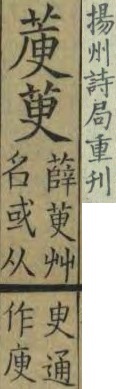 揚州詩局重刊
萸
薛萸艸
名或从
臾通
作庾